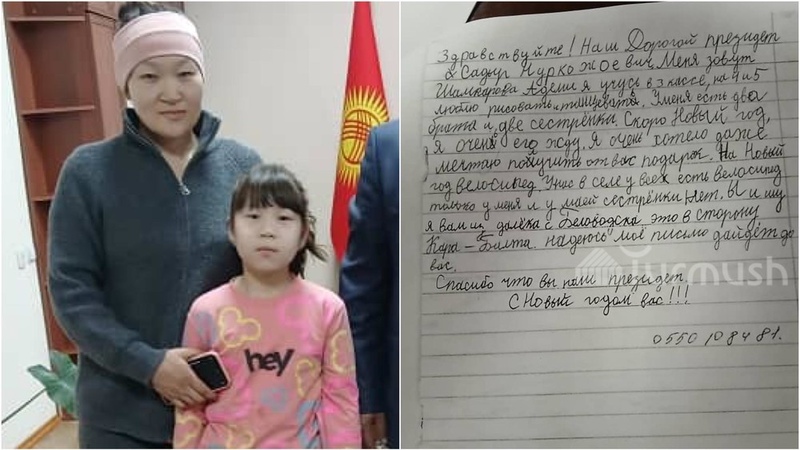 hey
Здравствуйте! Наш Дорогой президет
Садыр Нуркожоевич. Меня зовут
Шамкарова Адели я учусь в 3 кассе, на 4 и 5
люблю рисовать и танцевать. Уменя есть два
брата и две сестрёнки. Скоро Новый год,
я очень его жду. Я очень хотела даже
мечтаю получить от вас подарок. На Новый
год велосипед. Уже в селе у всех есть велосипед
только у меня и у маей сестрёнки нет.
я вам из далека с Беловодска, это в сторону
Кара-Балта. надеюсь моё письмо дайдёт до
вас.
Спасибо что вы президет
С Новый годом вас!!!
0550 10 84 81.
turmush